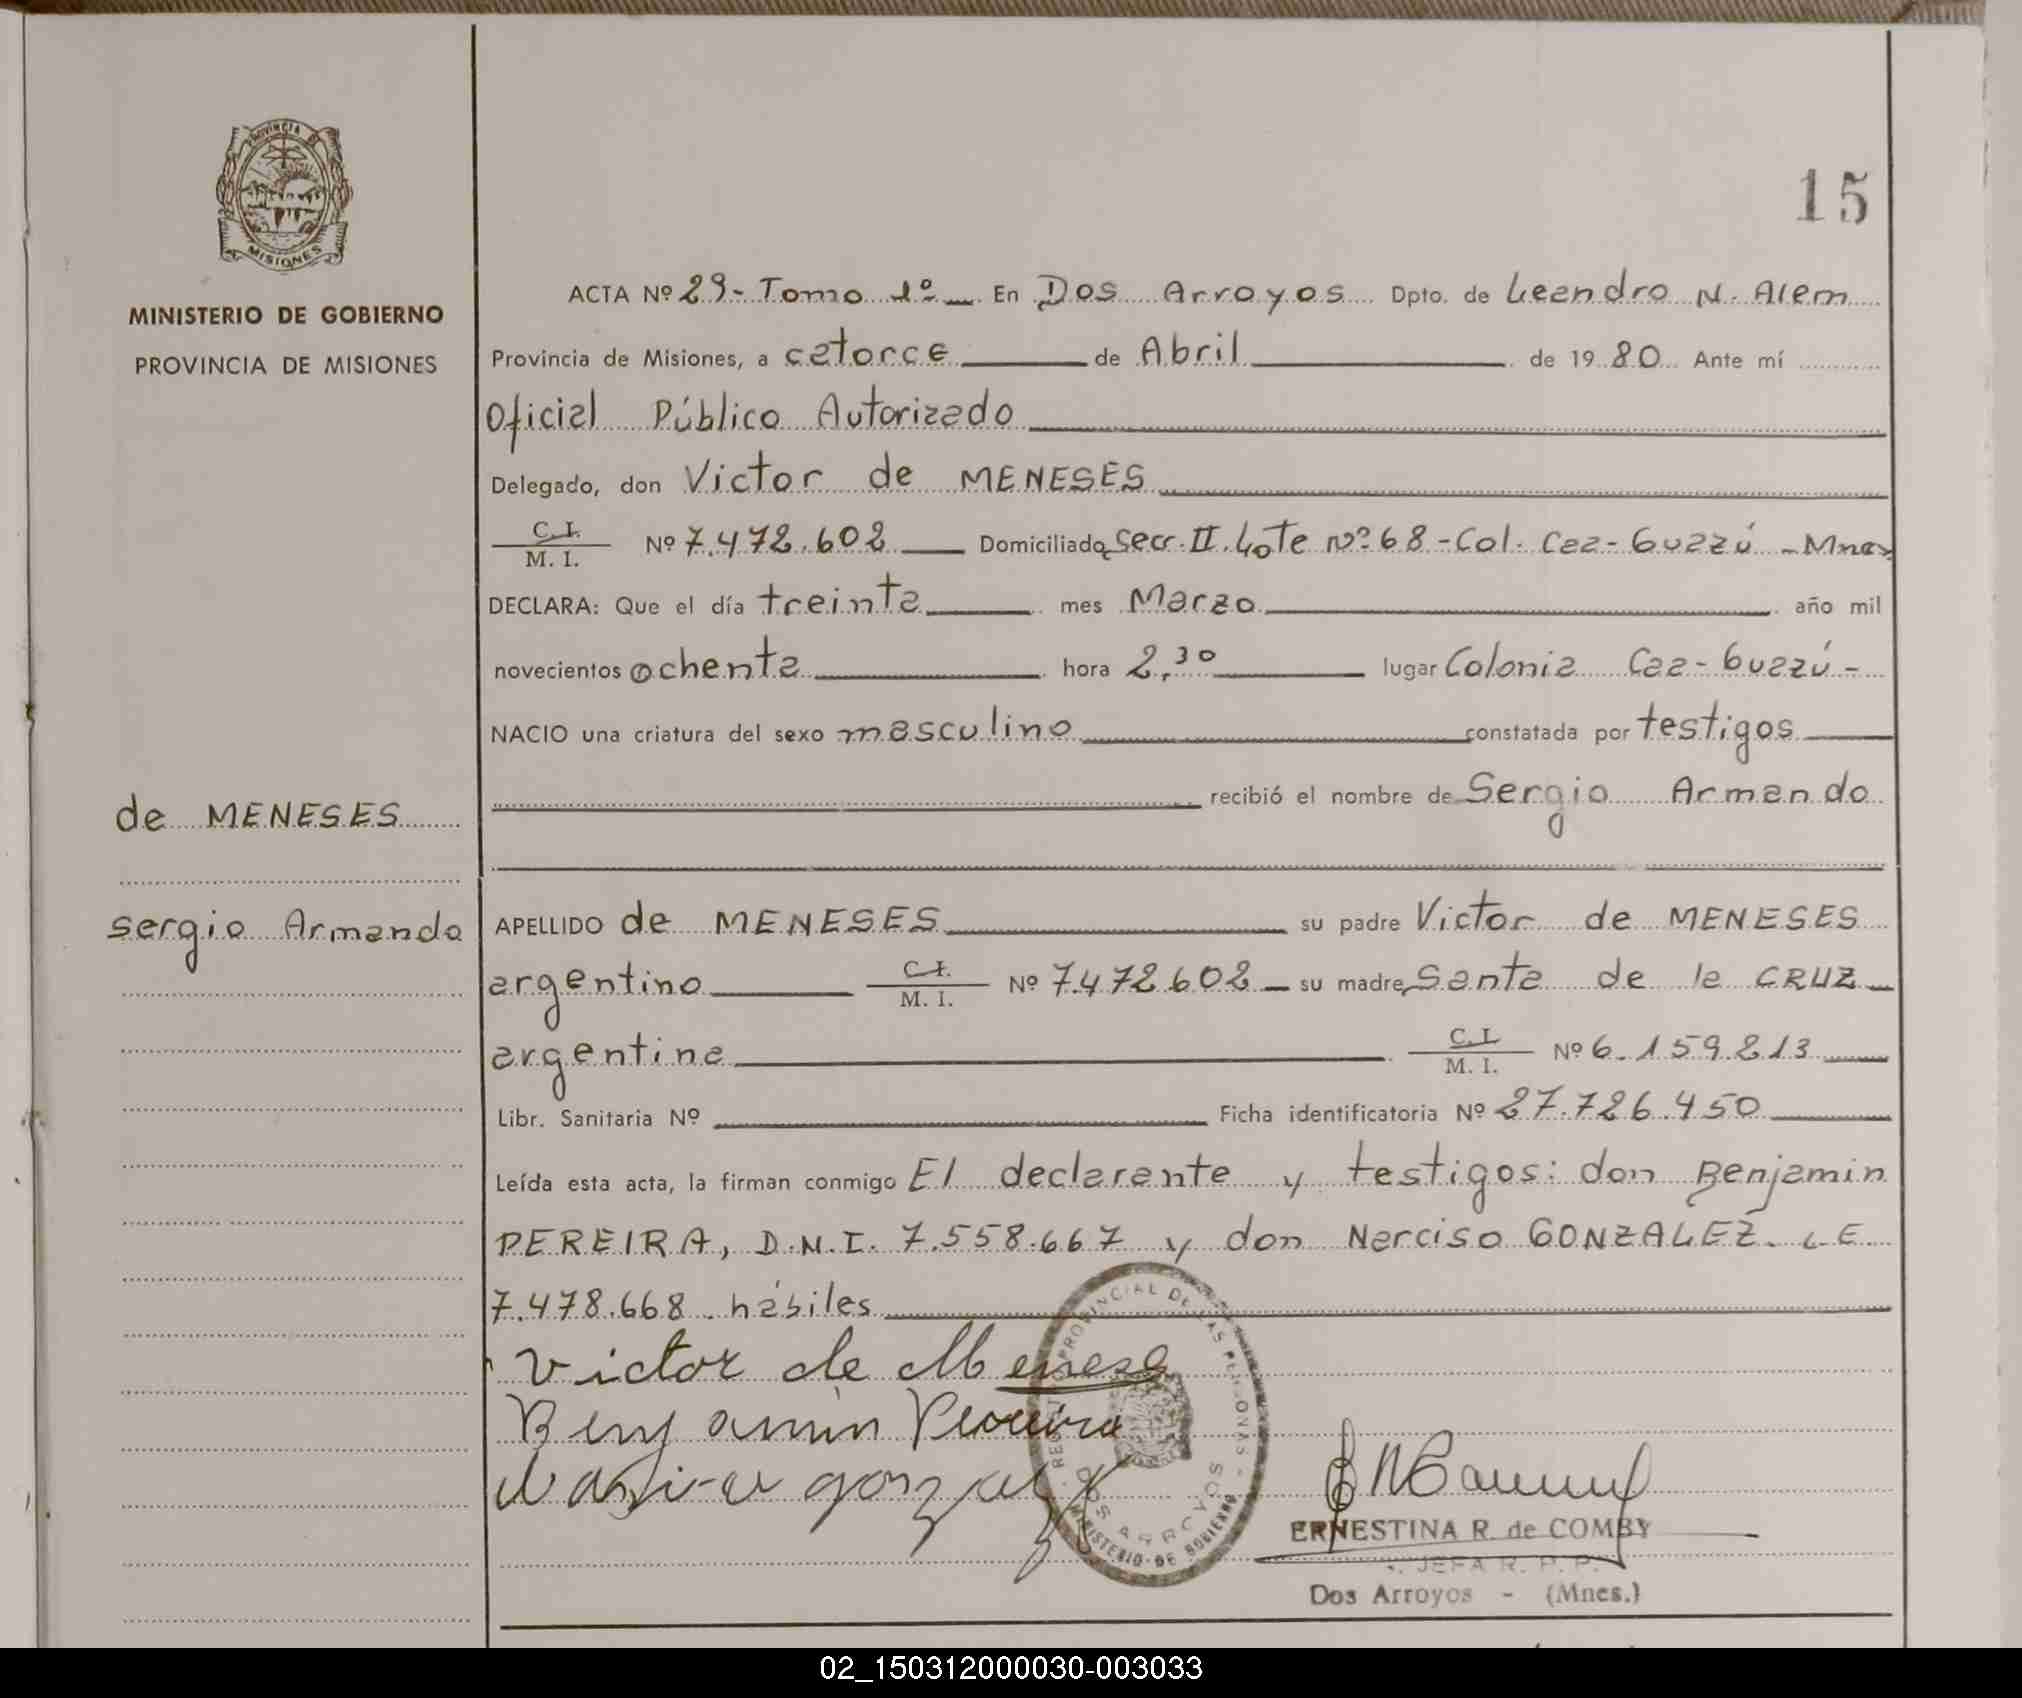 15
PROVINCIA DE
MISIONES
MINISTERIO DE GOBIERNO
PROVINCIA DE MISIONES
de MENESES
Sergio Armando
ACTA Nº 29- Tomo 1º En Dos Arroyos Dpto. de Leandro N. Alem
Provincia de Misiones, a catorce de Abril de 1980 Ante mí
Oficial Público Autorizado
Delegado, don Victor de MENESES
C. I. / M. I. Nº 7.472.602 Domiciliado Secc. II. Lote nº 68 - Col. Caa-Guazú - Mnes
DECLARA: Que el día treinta mes Marzo año mil
novecientos ochenta hora 2,30 lugar Colonia Caa-Guazú-
NACIO una criatura del sexo masculino constatada por testigos
recibió el nombre de Sergio Armando
APELLIDO de MENESES su padre Victor de MENESES
argentino C. I. / M. I. Nº 7.472.602 su madre Santa de la CRUZ
argentina C. I. / M. I. Nº 6.159.213
Libr. Sanitaria Nº Ficha identificatoria Nº 27.726.450
Leída esta acta, la firman conmigo El declarante y testigos: don Benjamin
PEREIRA, D.N.I. 7.558.667 y don Narciso GONZALEZ. L E
7.478.668. hábiles
Victor de Meneses
Benjamin Pereira
gonzalez
REGISTRO PROVINCIAL DE LAS PERSONAS
DOS ARROYOS
MINISTERIO DE GOBIERNO
ERNESTINA R. de COMBY
JEFA R. P. P.
Dos Arroyos - (Mnes.)
02_150312000030-003033